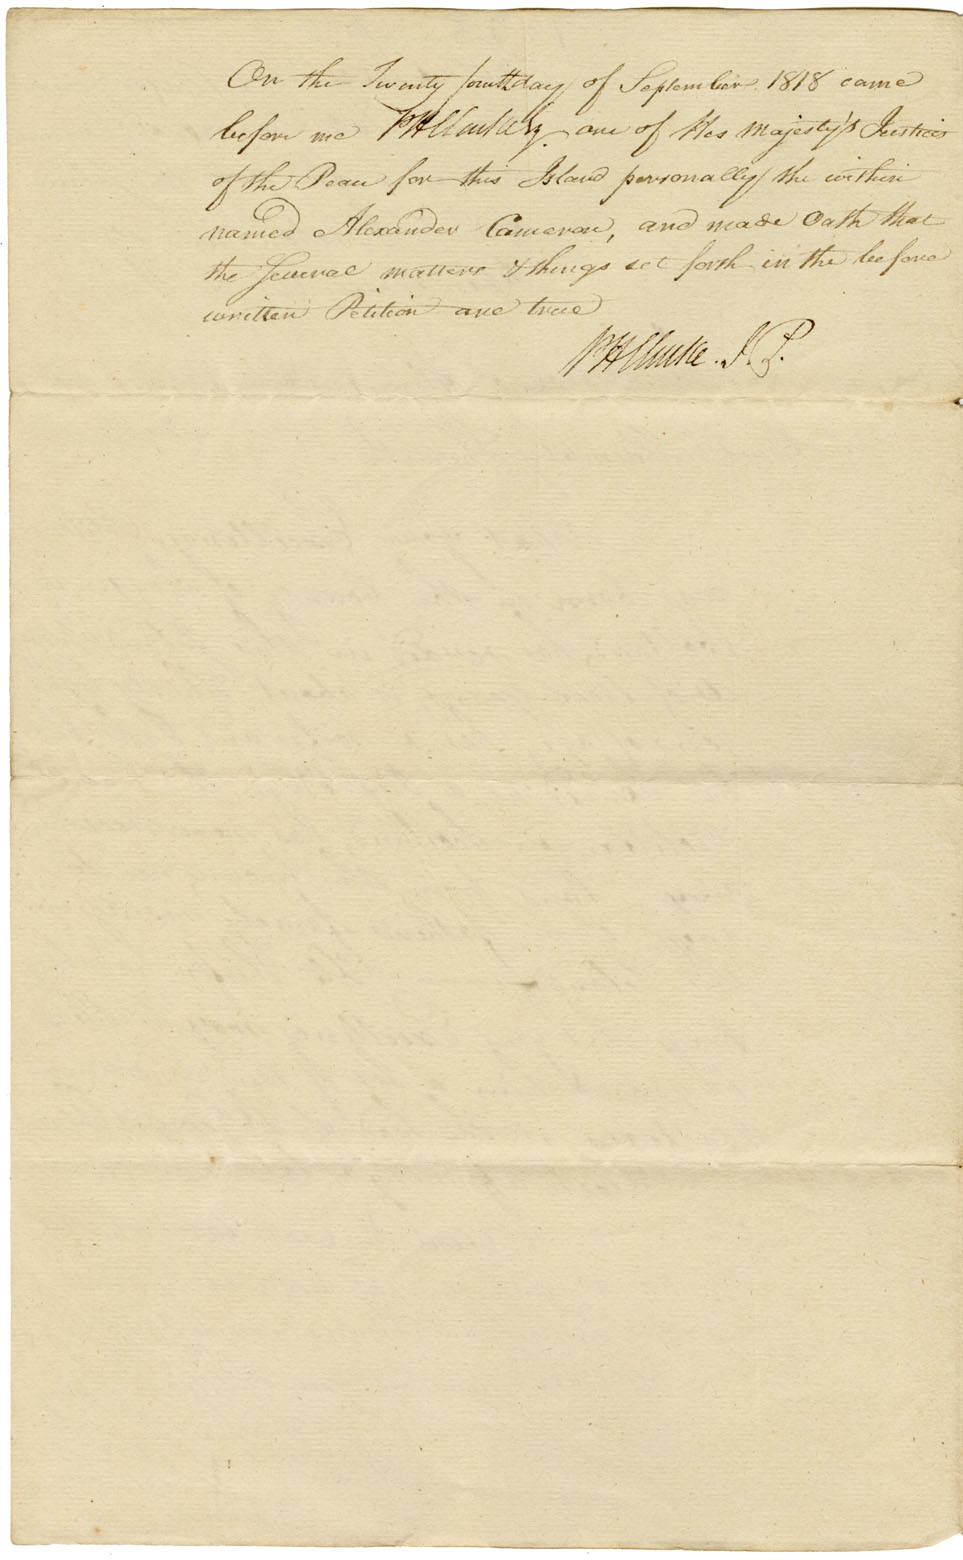 On the Twenty fourth day of September 1818 came
before me one of His Majesty's Justices
of the Peace for this Island personally the within
named Alexander Cameron, and made Oath that
the Several matters & things set forth in the before
written Petition are true
J. P.